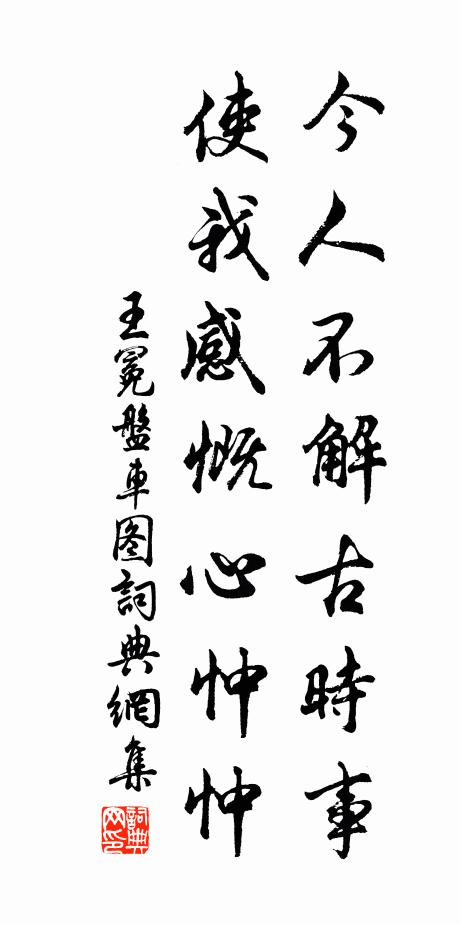 今人不解古時事
使我感慨心忡忡
王冕盤車图詞典網集
詞典网印